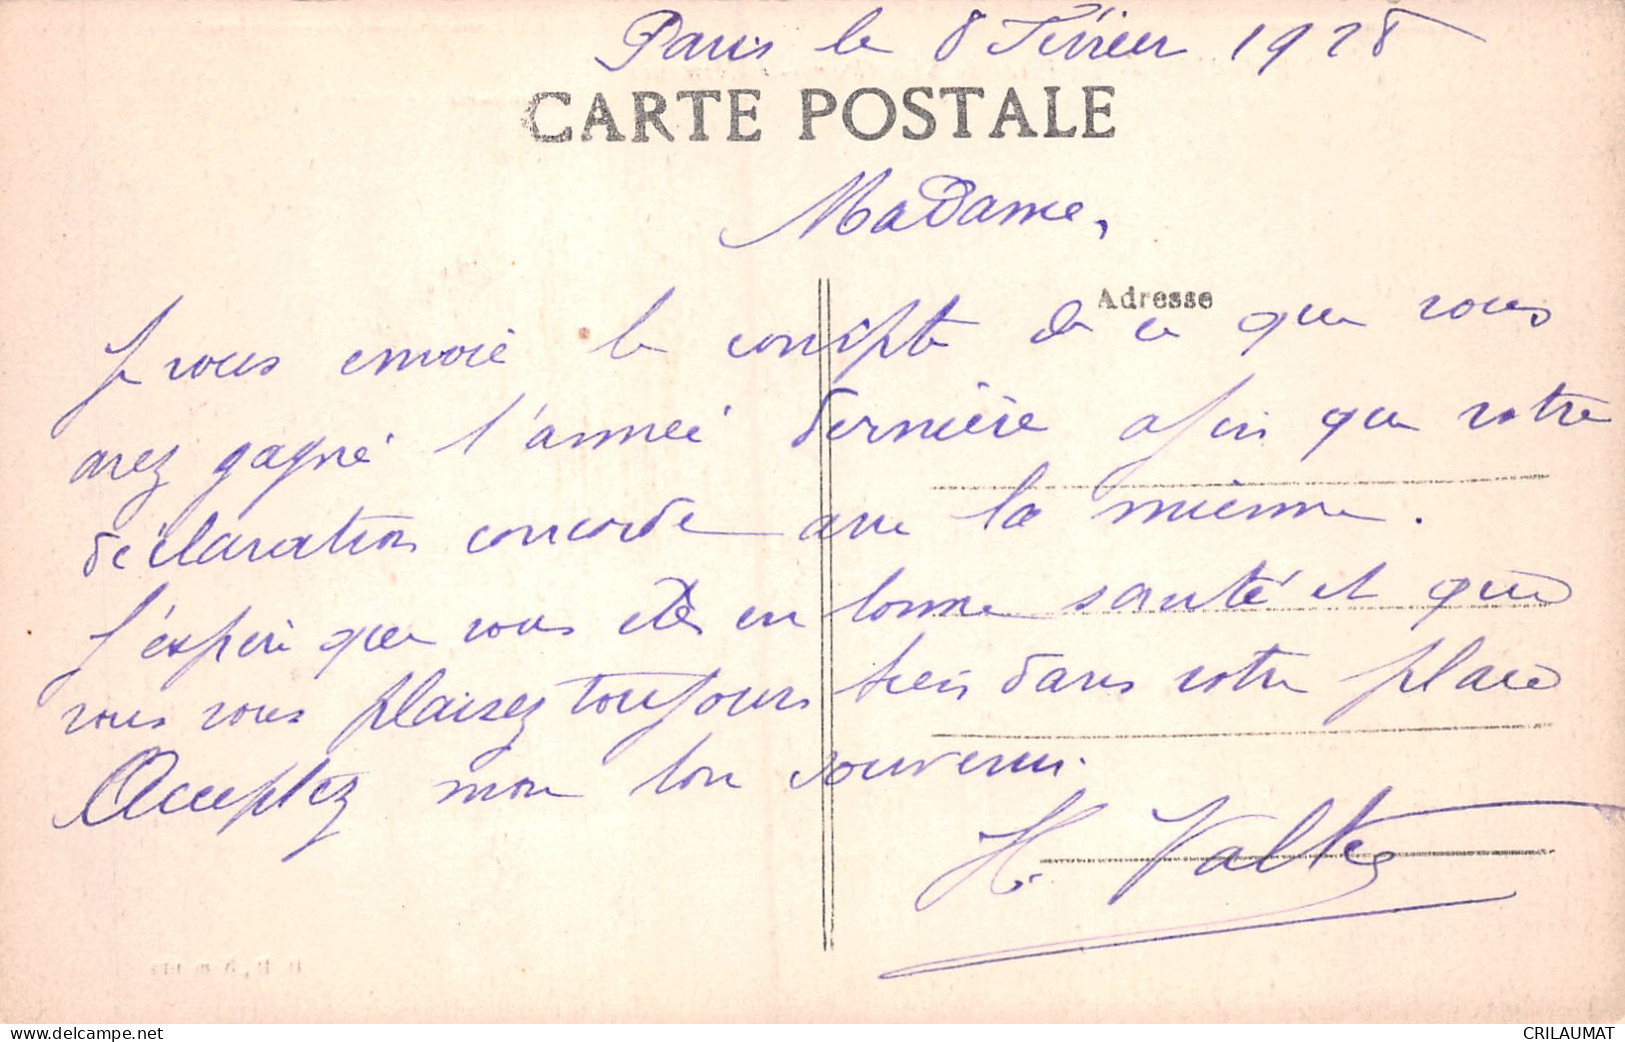 Paris le 8 Février 1928
CARTE POSTALE
Madame,
Adresse
Je vous envoie le compte de ce que vous
avez gagné l'année dernière afin que votre
déclaration concorde avec la mienne.
J'espère que vous êtes en bonne santé et que
vous vous plaisez toujours bien dans votre place
Acceptez mon bon souvenir.
H.
www.delcampe.net
CRILAUMAT